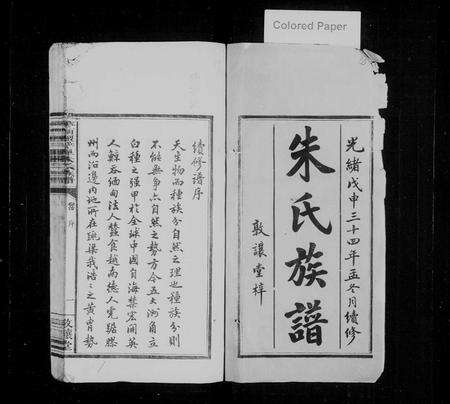 Colored Paper
光緒戊申三十四年孟冬月續修
朱氏族譜
敦讓堂梓
續修譜序
天生物而種族分自然之理也種族分則
不能無爭亦自然之勢方今五大洲角立
白種之強甲於全球中國自海禁宏開英
人鯨吞緬甸法人蠶食越南德人竟踞膠
州而沿邊內地所在
我浩浩之黃胄勢